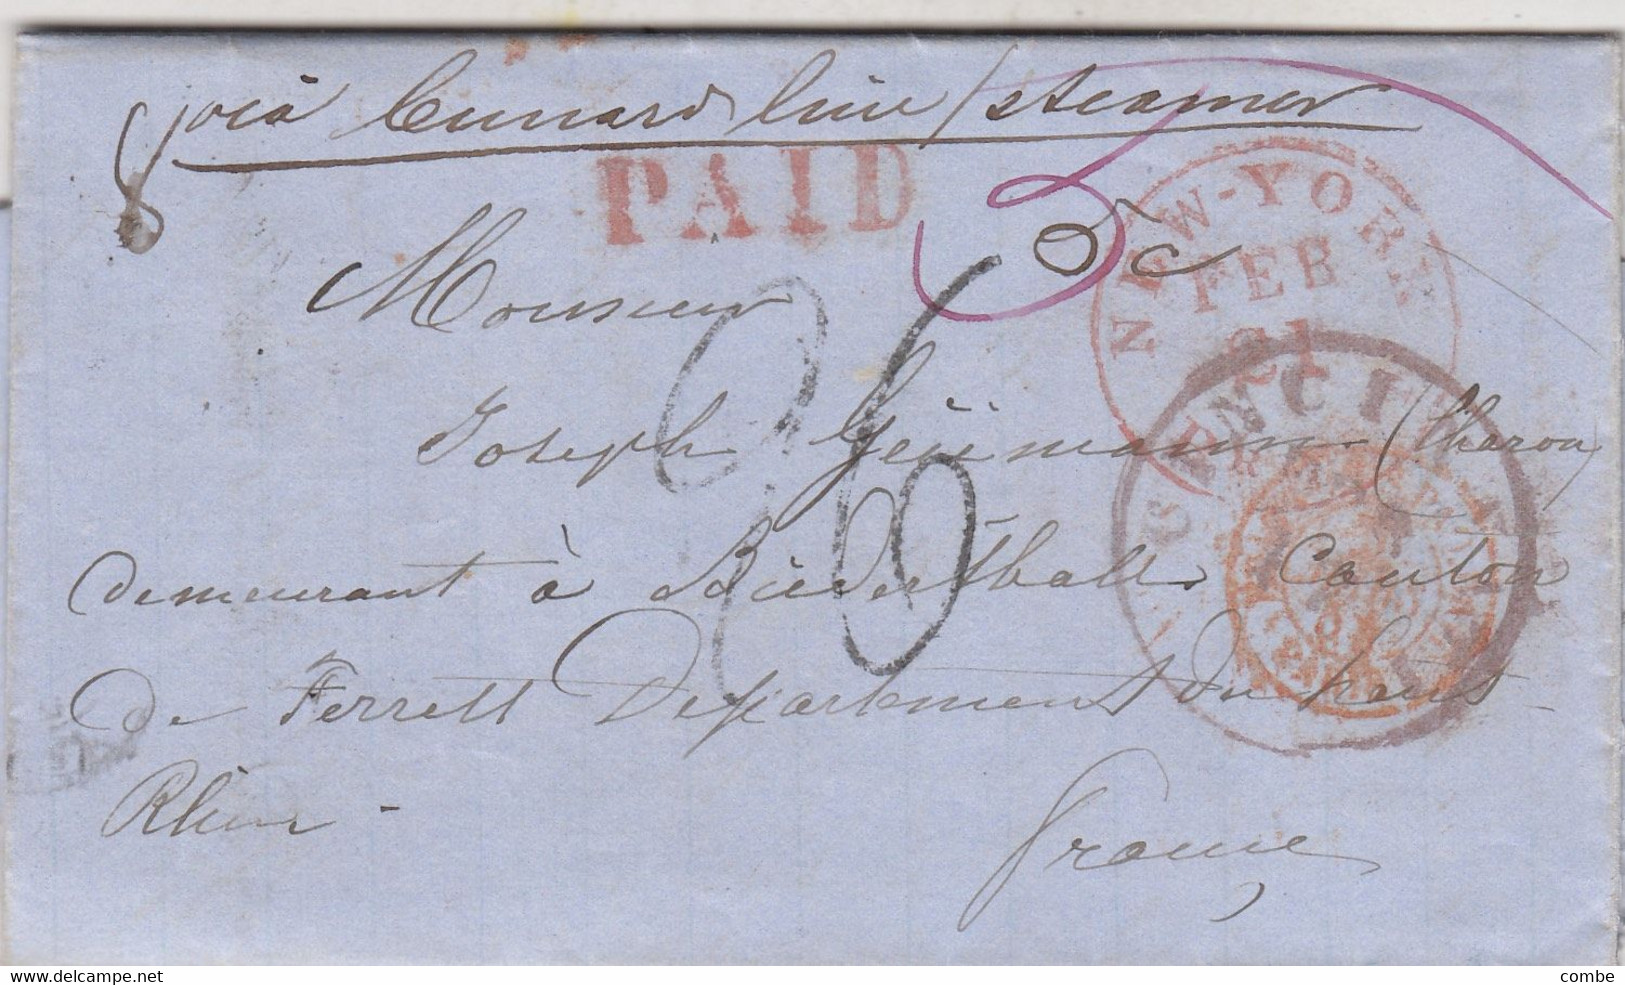 via Cunard line / steamer
PAID
5c
NEW-YORK
FEB
21
Monsieur
26
Joseph (Charon)
demeurant à Biederthall, Canton
de Ferrett Departement du haut
Rhin -
france
www.delcampe.net
combe